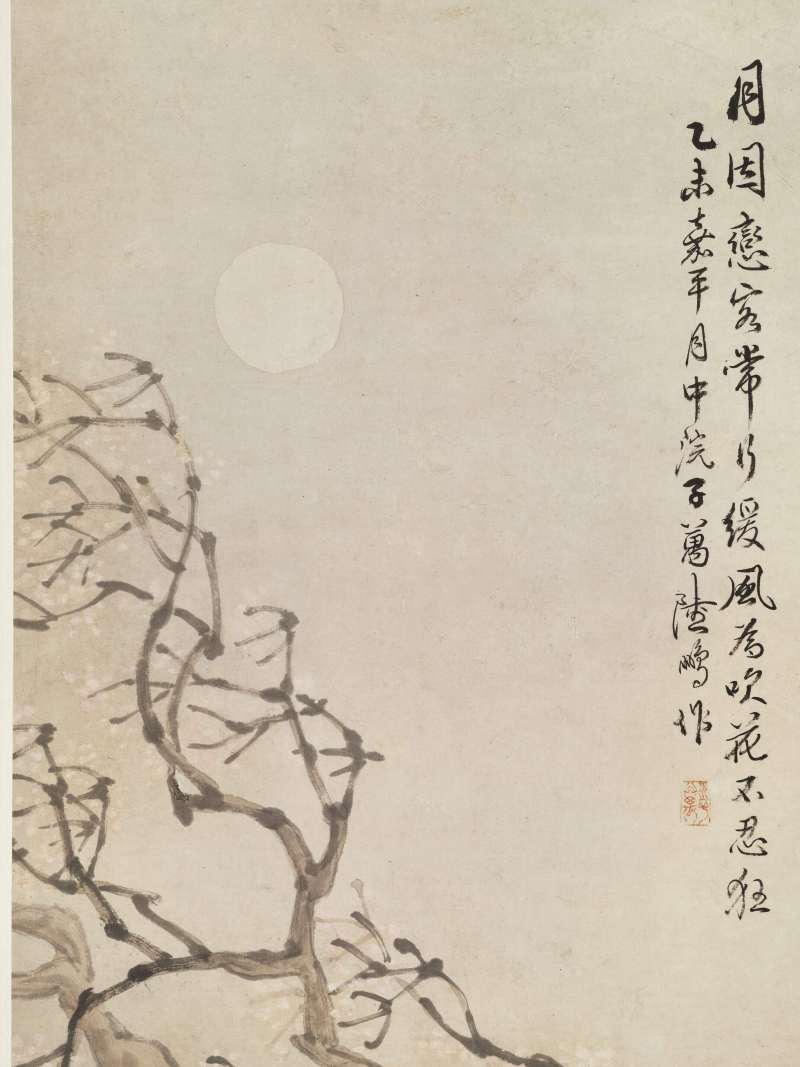 月因戀客常行緩風為吹花不忍狂
乙未嘉平月中浣子萬陸鵬作